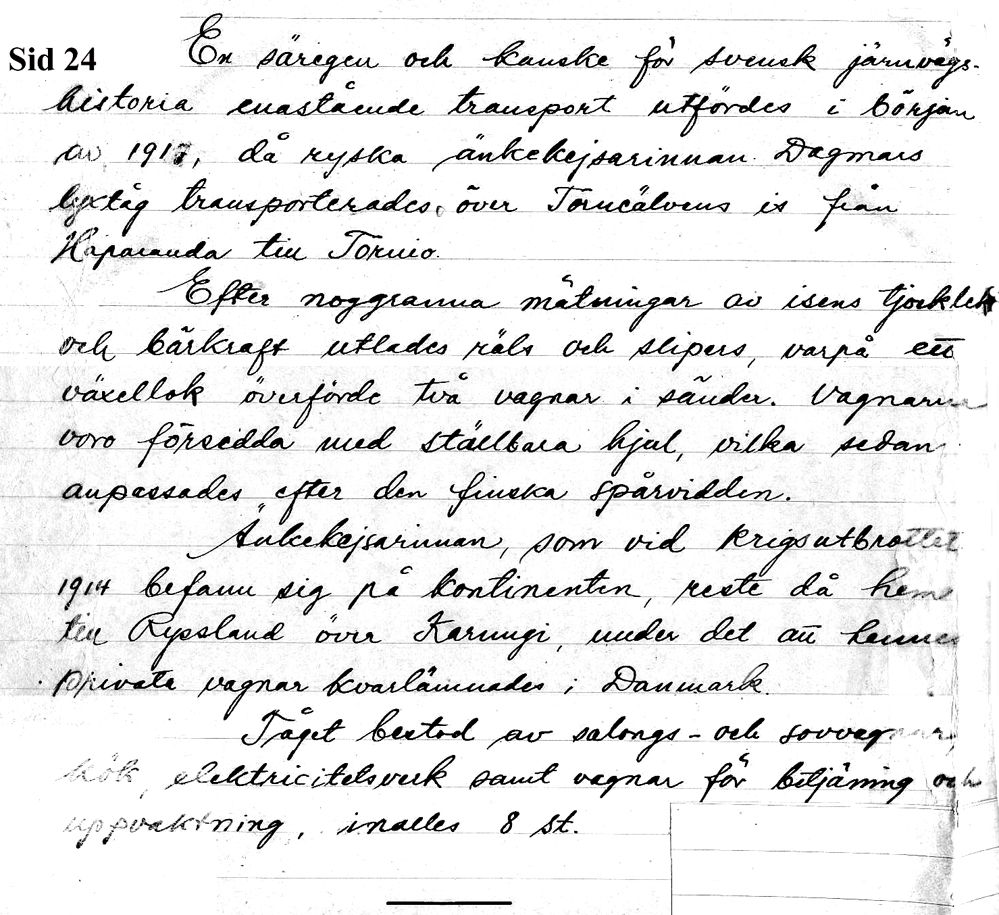 Sid 24 En säregen och kanske för svensk järnvägs-
historia enastående transport utfördes i början
av 1917, då ryska änkekejsarinnan Dagmars
lyxtåg transporterades över Torneälvens is från
Haparanda till Tornio.
Efter noggranna mätningar av isens tjocklek
och bärkraft utlades räls och slipers, varpå ett
växellok överförde två vagnar i sänder. Vagnarna
voro försedda med ställbara hjul, vilka sedan
anpassades efter den finska spårvidden.
Änkekejsarinnan, som vid krigsutbrottet
1914 befann sig på kontinenten, reste då hem
till Ryssland över Karungi, under det att hennes
privata vagnar kvarlämnades i Danmark.
Tåget bestod av salongs- och sovvagnar,
kök, elektricitetsverk samt vagnar för betjäning och
uppvaktning, inalles 8 st.